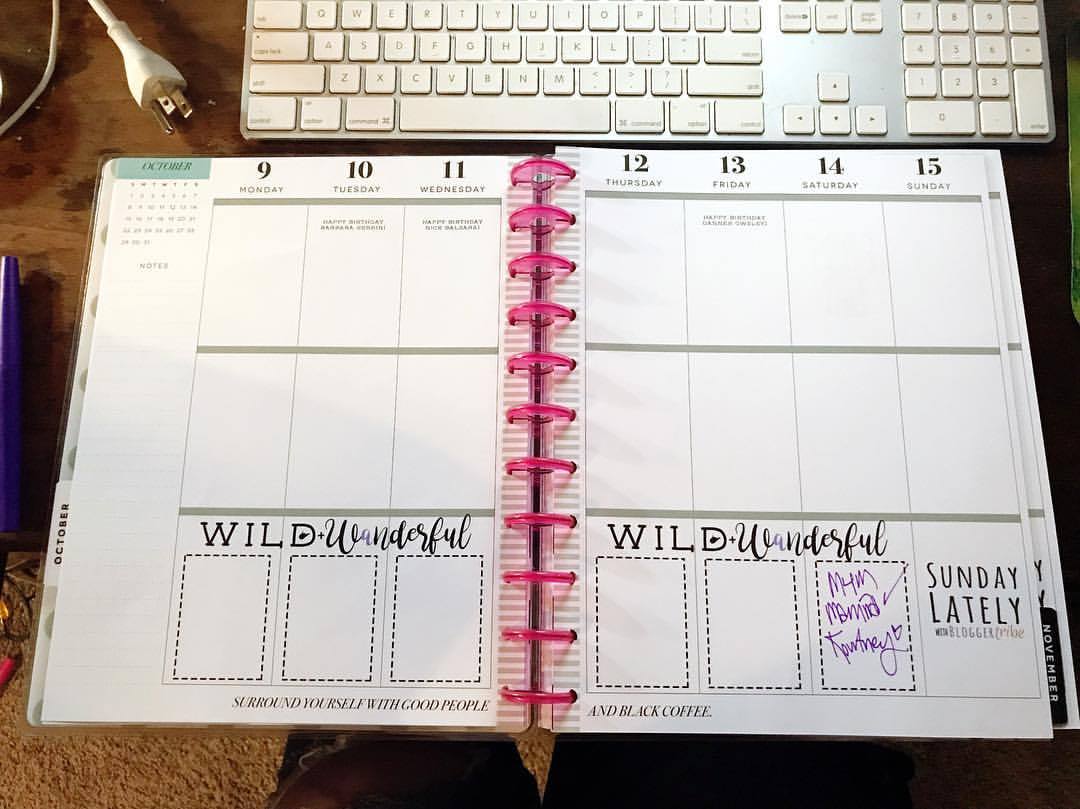 OCTOBER
S M T W T F S
1 2 3 4 5 6 7
8 9 10 11 12 13 14
15 16 17 18 19 20 21
22 23 24 25 26 27 28
29 30 31
NOTES
9
MONDAY
10
TUESDAY
11
WEDNESDAY
12
THURSDAY
13
FRIDAY
14
SATURDAY
15
SUNDAY
HAPPY BIRTHDAY
BARBARA
HAPPY BIRTHDAY
NICK
HAPPY BIRTHDAY
OWSLEY!
OCTOBER
WILD+Wanderful
WILD+Wanderful
Kourtney
SUNDAY
LATELY
WITH BLOGGER tribe
NOVEMBER
SURROUND YOURSELF WITH GOOD PEOPLE
AND BLACK COFFEE.
tab Q W E R T Y U I O P
caps lock A S D F G H J K L return
shift Z X C V B N M shift
control option command command option control
delete end page down
7 8 9
4 5 6
1 2 3
0 enter